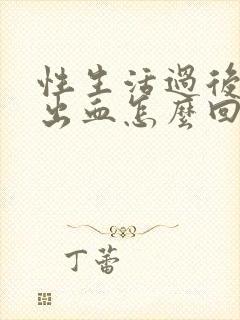 性生活過後
出血怎麼回
丁蕾